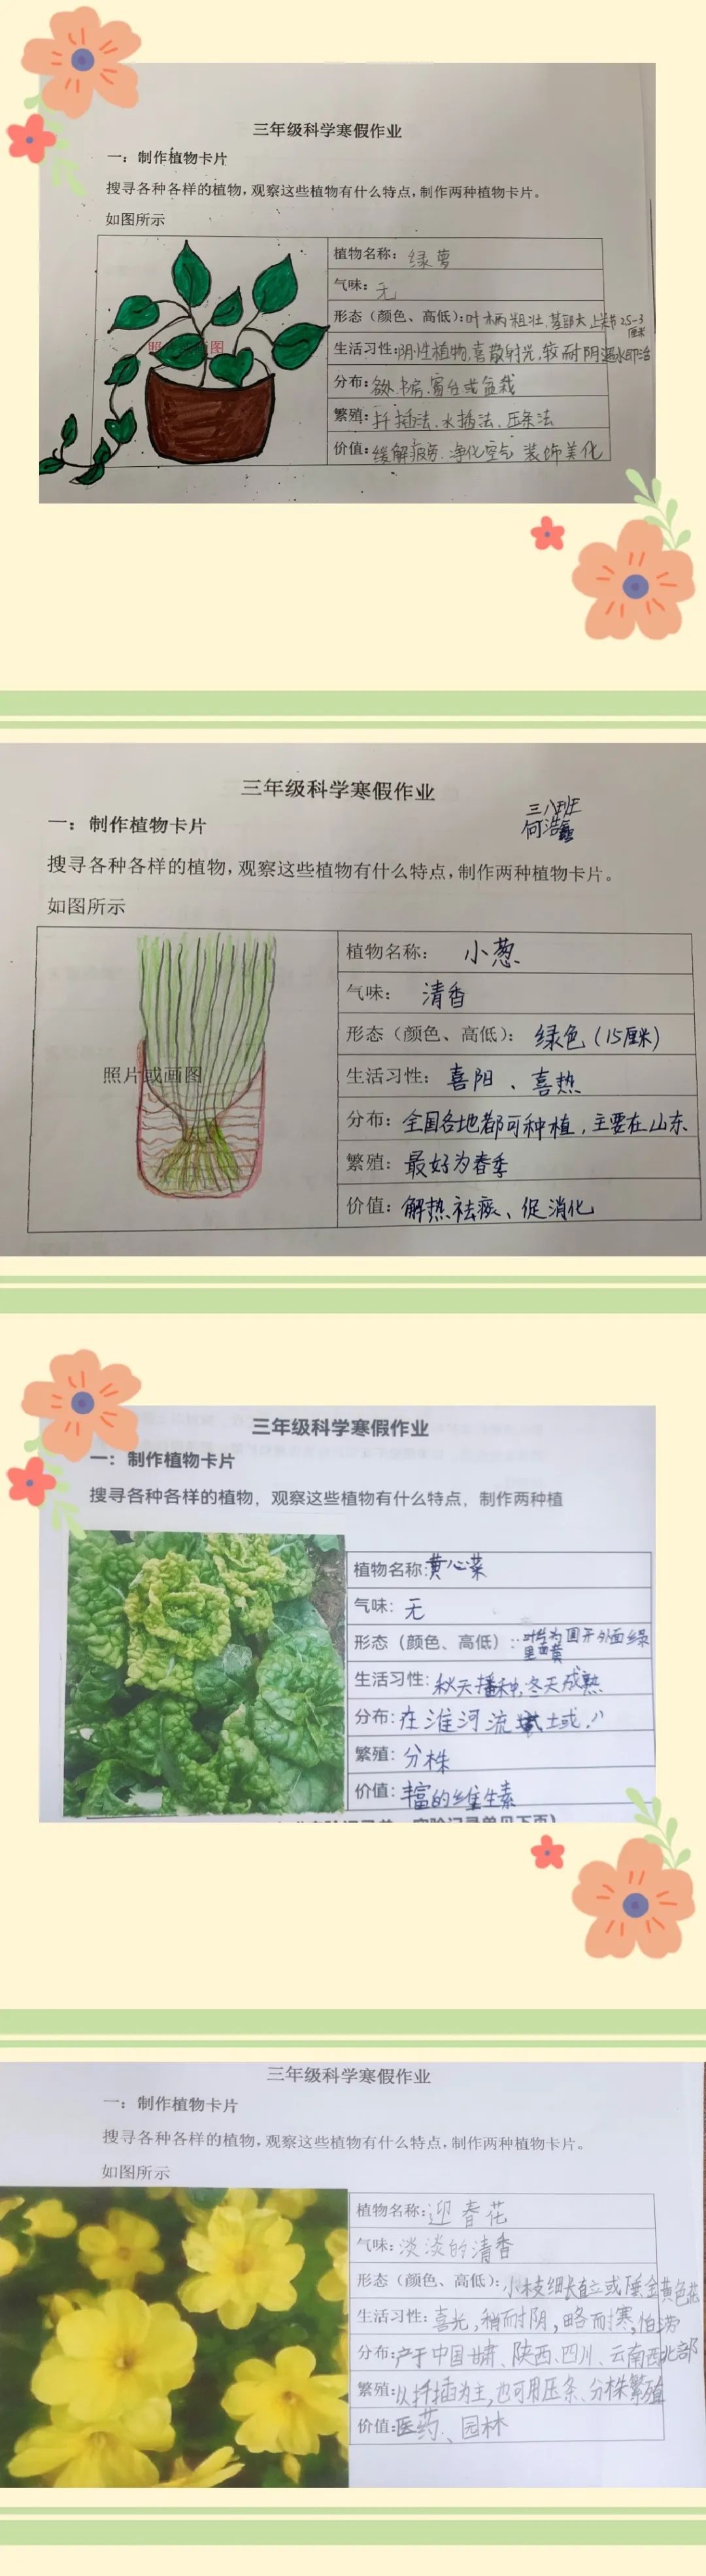 三年级科学寒假作业
一：制作植物卡片
搜寻各种各样的植物，观察这些植物有什么特点，制作两种植物卡片。
如图所示
植物名称： 绿萝
气味：无
形态（颜色、高低）：叶柄粗壮，基部大，上关节2.5-3厘米
生活习性：阴性植物，喜散射光，较耐阴 遇水即活
分布： 书房、窗台或盆栽
繁殖：扦插法、水插法、压条法
价值：缓解疲劳、净化空气 装饰美化
三年级科学寒假作业
三八班
何浩
一：制作植物卡片
搜寻各种各样的植物，观察这些植物有什么特点，制作两种植物卡片。
如图所示
照片或画图
植物名称： 小葱
气味： 清香
形态（颜色、高低）： 绿色（15厘米）
生活习性：喜阳、喜热
分布：全国各地都可种植，主要在山东、
繁殖：最好为春季
价值：解热、祛痰、促消化
三年级科学寒假作业
一：制作植物卡片
搜寻各种各样的植物，观察这些植物有什么特点，制作两种植
植物名称：黄心菜
气味：无
形态（颜色、高低）：叶片为圆开外面绿里面黄
生活习性：秋天播种，冬天成熟
分布：在淮河流域
繁殖：分株
价值：丰富的维生素
三年级科学寒假作业
一：制作植物卡片
搜寻各种各样的植物，观察这些植物有什么特点，制作两种植物卡片。
如图所示
植物名称：迎春花
气味：淡淡的清香
形态（颜色、高低）：小枝细长直立或垂金黄色花
生活习性：喜光，稍耐阴，略耐寒，怕涝
分布：产于中国甘肃、陕西、四川、云南西北部
繁殖：以扦插为主，也可用压条、分株繁殖
价值：医药、园林